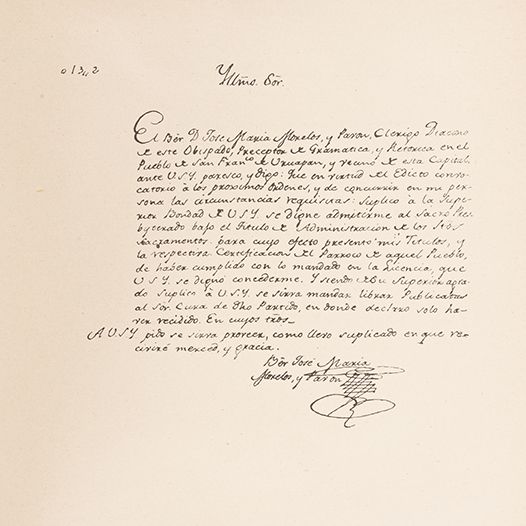 Yllmo. Sõr.
El Bõr D. José Maria Morelos, y Pavon, Clerigo Diacono
de este Obispado, Preceptor de Gramatica, y Retorica en el
Pueblo de San Franco. de Uruapan, y vecino de esta Capital:
ante USY. paresco, y digo: Que en virtud del Edicto convo-
catorio à los proximos Ordenes, y de concurrir en mi per-
sona las circunstancias requisitas: suplico à la Supe-
rior Bondad de USY. se digne admitirme al Sacro Pres
byterado bajo el Titulo de Administracion de los Stós.
Sacramentos. para cuyo efecto presento mis Titulos, y
la respectiva Certificacion del Parroco de aquel Pueblo,
de haber cumplido con lo mandado en la licencia, que
USY. se dignó concederme. Y siendo de su Superior agra-
do Suplico à USY. se sirva mandar librar Publicatas
al Sór. Cura de dho Partido, en donde declaro solo ha-
ver recidido. En cuyos tros_
A USY. pido se sirva proveer, como llevo suplicado en que re-
civiré merced, y gracia.
Bõr José Maria
Morelos, y Pavon